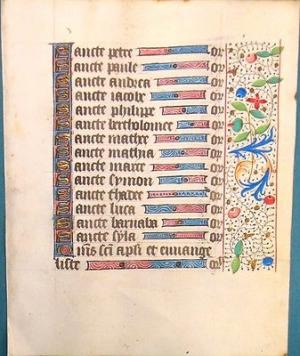 Sancte petre or
Sancte paule or
Sancte andrea or
Sancte iacobe or
Sancte philippe or
Sancte bertholomee or
Sancte mathee or
Sancte mathia or
Sancte marce or
Sancte symon or
Sancte thadee or
Sancte luca or
Sancte barnaba or
Sancte syla or
Omis sci apli et euuange
liste or